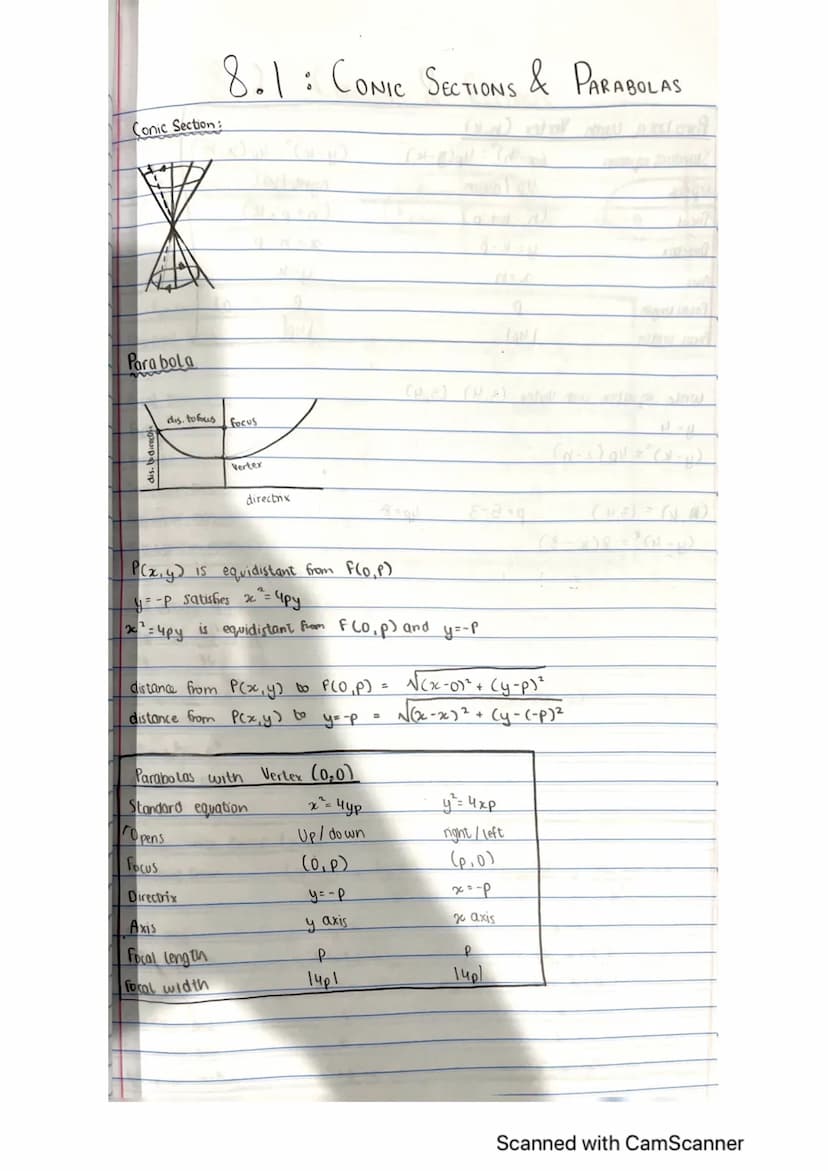 8.1 : CONIC SECTIONS & PARABOLAS
Conic Section:
Parabola
dis. to focus
focus
dis. to directrix
vertex
directrix
P(x,y) is equidistant from F(0,p)
y=-p satisfies x²=4py
x²=4py is equidistant from F(0,p) and y=-p
distance from P(x,y) to F(0,p) = √(x-0)² + (y-p)²
distance from P(x,y) to y=-p = √(x-x)² + (y-(-p)²
Parabolas with Vertex (0,0)
Standard equation x²=4yp y²=4xp
Opens Up/down right/left
Focus (0,p) (p,0)
Directrix y=-p x=-p
Axis y axis x axis
Focal length p p
Focal width |4p| |4p|
Scanned with CamScanner